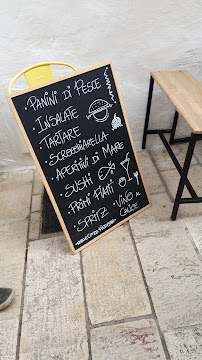 PANINI DI PESCE
• INSALATE
• TARTARE
• SCROCCHIARELLA
APERITIVI DI MARE
• SUSHI
• PRIMI PIATTI
• SPRITZ • VINO AL
CALICE